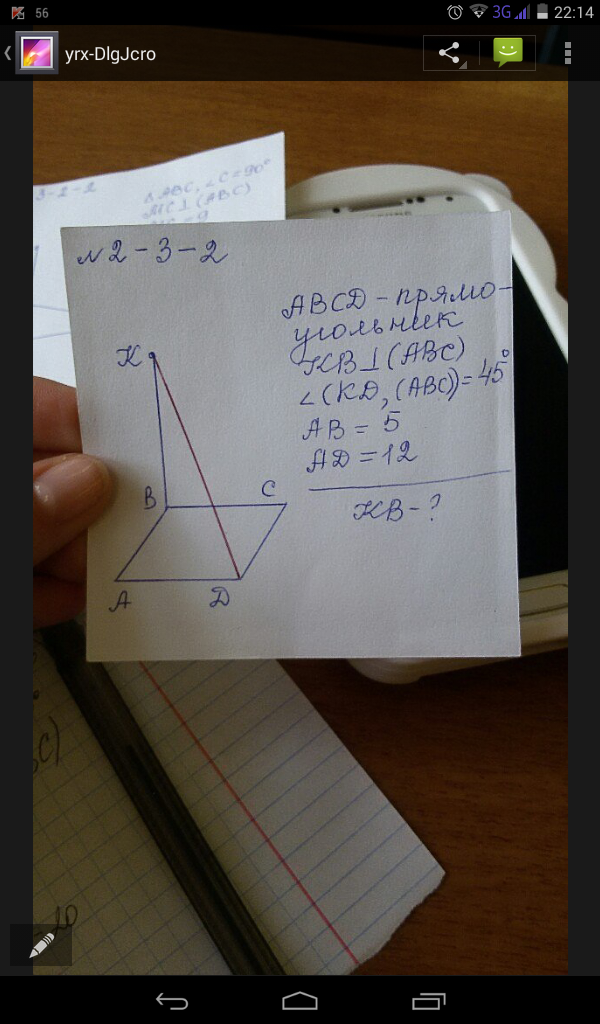 56
3G
22:14
yrx-DlgJcro
3-2-2
△ABC, ∠C=90°
MC⊥(ABC)
N2-3-2
ABCD - прямо-
угольник
KB⊥(ABC)
∠(KD,(ABC))=45°
AB = 5
AD = 12
KB - ?
K
B
C
A
D